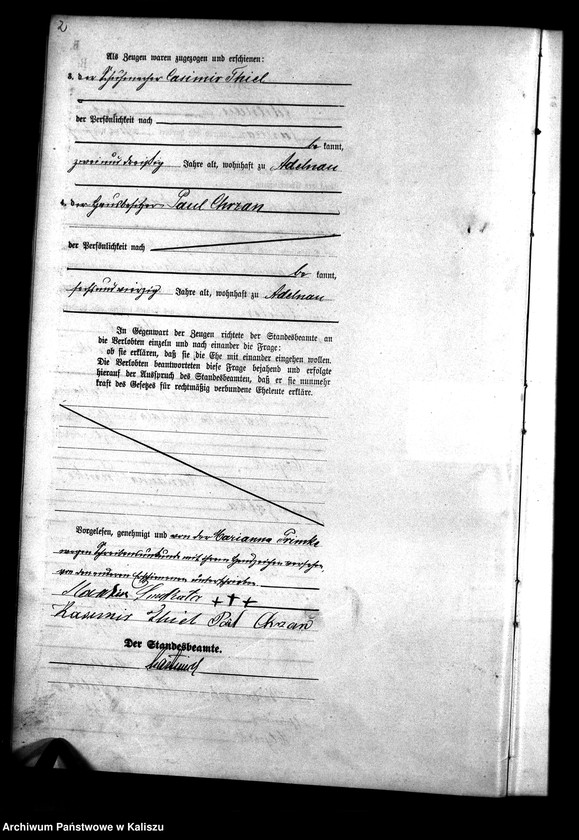 2
Als Zeugen waren zugezogen und erschienen:
3. der Schuhmacher Casimir Thiel
der Persönlichkeit nach
be kannt,
zweiunddreißig Jahre alt, wohnhaft zu Adelnau
4. der Hausbesitzer Paul Chozan
der Persönlichkeit nach
be kannt,
sechsundvierzig Jahre alt, wohnhaft zu Adelnau
In Gegenwart der Zeugen richtete der Standesbeamte an
die Verlobten einzeln und nach einander die Frage:
ob sie erklären, daß sie die Ehe mit einander eingehen wollen.
Die Verlobten beantworteten diese Frage bejahend und erfolgte
hierauf der Ausspruch des Standesbeamten, daß er sie nunmehr
kraft des Gesetzes für rechtmäßig verbundene Eheleute erkläre.
Vorgelesen, genehmigt und von der Marianna
wegen Schreibensunkunde mit ihrem Handzeichen versehen,
von den unterschrieben
+++
Kasimir Thiel
Der Standesbeamte.
Archiwum Państwowe w Kaliszu